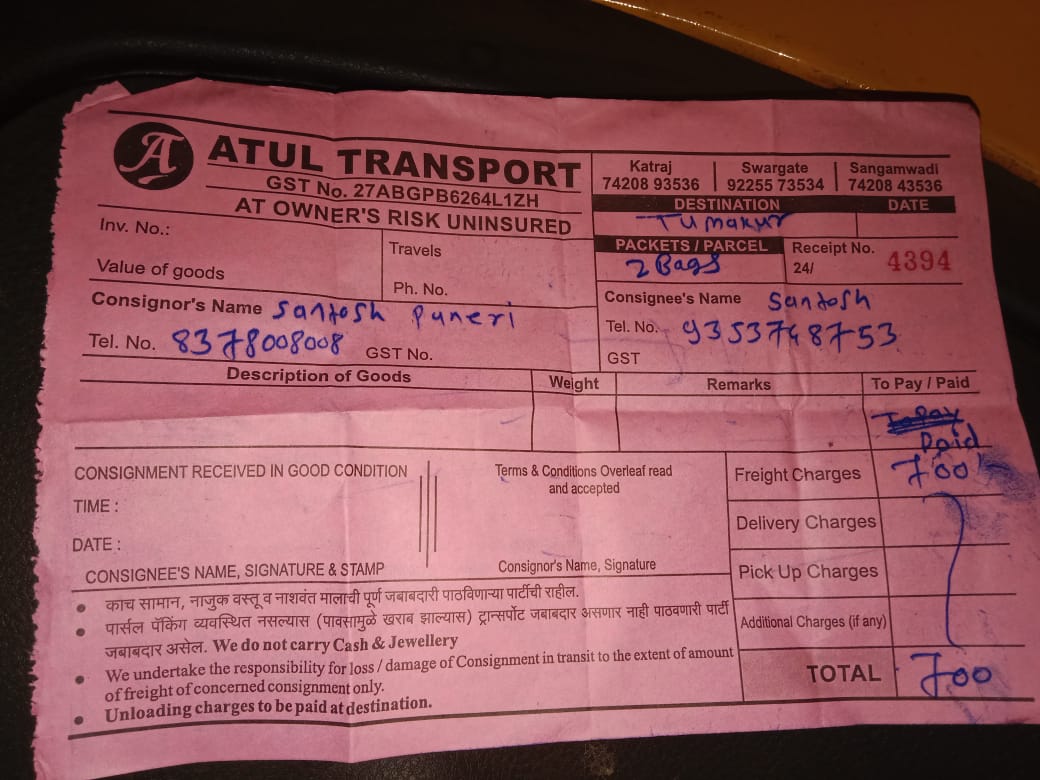 A ATUL TRANSPORT
GST No. 27ABGPB6264L1ZH
AT OWNER'S RISK UNINSURED
Katraj 74208 93536
Swargate 92255 73534
Sangamwadi 74208 43536
DESTINATION DATE
Tumakur
Inv. No.:
Value of goods
Travels
Ph. No.
PACKETS / PARCEL
2 Bags
Receipt No.
24/ 4394
Consignor's Name Santosh Puneri
Tel. No. 8378008008 GST No.
Consignee's Name Santosh
Tel. No. 9353748753
GST
Description of Goods Weight Remarks To Pay / Paid
To Pay
Paid
CONSIGNMENT RECEIVED IN GOOD CONDITION
TIME :
DATE :
CONSIGNEE'S NAME, SIGNATURE & STAMP
Terms & Conditions Overleaf read
and accepted
Consignor's Name, Signature
Freight Charges 700
Delivery Charges
Pick Up Charges
Additional Charges (if any)
TOTAL 700
• काच सामान, नाजुक वस्तू व नाशवंत मालाची पूर्ण जबाबदारी पाठविणाऱ्या पार्टीची राहील.
• पार्सल पॅकिंग व्यवस्थित नसल्यास (पावसामुळे खराब झाल्यास) ट्रान्सपोर्ट जबाबदार असणार नाही पाठवणारी पार्टी
जबाबदार असेल. We do not carry Cash & Jewellery
• We undertake the responsibility for loss / damage of Consignment in transit to the extent of amount
of freight of concerned consignment only.
• Unloading charges to be paid at destination.